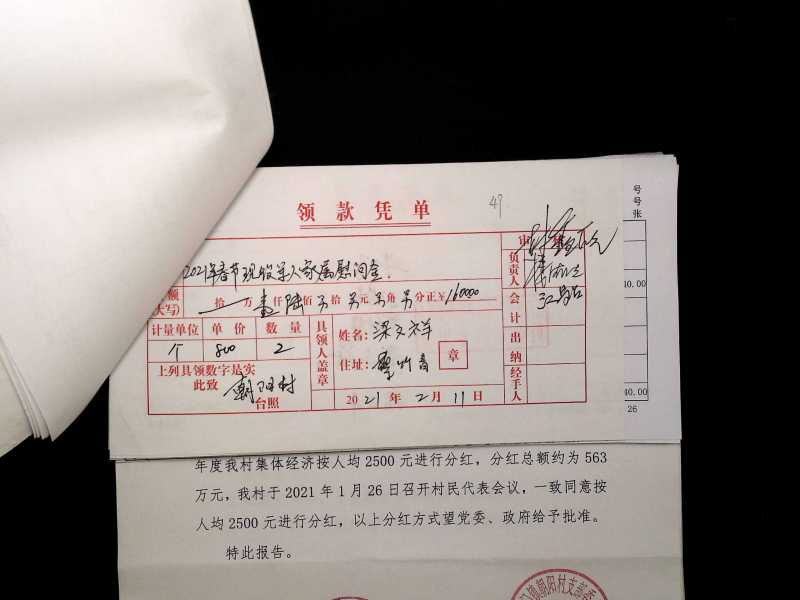 49
领款凭单
2021年春节现役军人家属慰问金
额
(大写) 拾 万 壹仟陆佰 拾 元 角 分正¥1600.00
计量单位 单价 数量
个 800 2
上列具领数字是实
此致 朝阳村
台照
具领人盖章
姓名:梁
住址:
章
2021年2月11日
审
负责人
会计
出纳
经手人
号
号
张
40.00
40.00
26
年度我村集体经济按人均2500元进行分红，分红总额约为563
万元，我村于2021年1月26日召开村民代表会议，一致同意按
人均2500元进行分红，以上分红方式望党委、政府给予批准。
特此报告。
镇朝阳村支部委